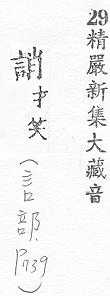 29精嚴新集大藏音
誚才笑(言部P739)